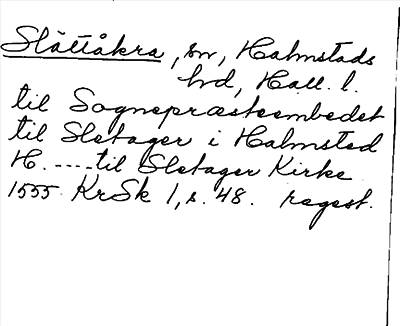 Slättåkra, sn, Halmstads
hd, Hall. l.
til Sognepræsteembedet
til Sletager i Halmsted
H. ---- til Sletager Kirke
1555. KrSk 1, s. 48. regest.